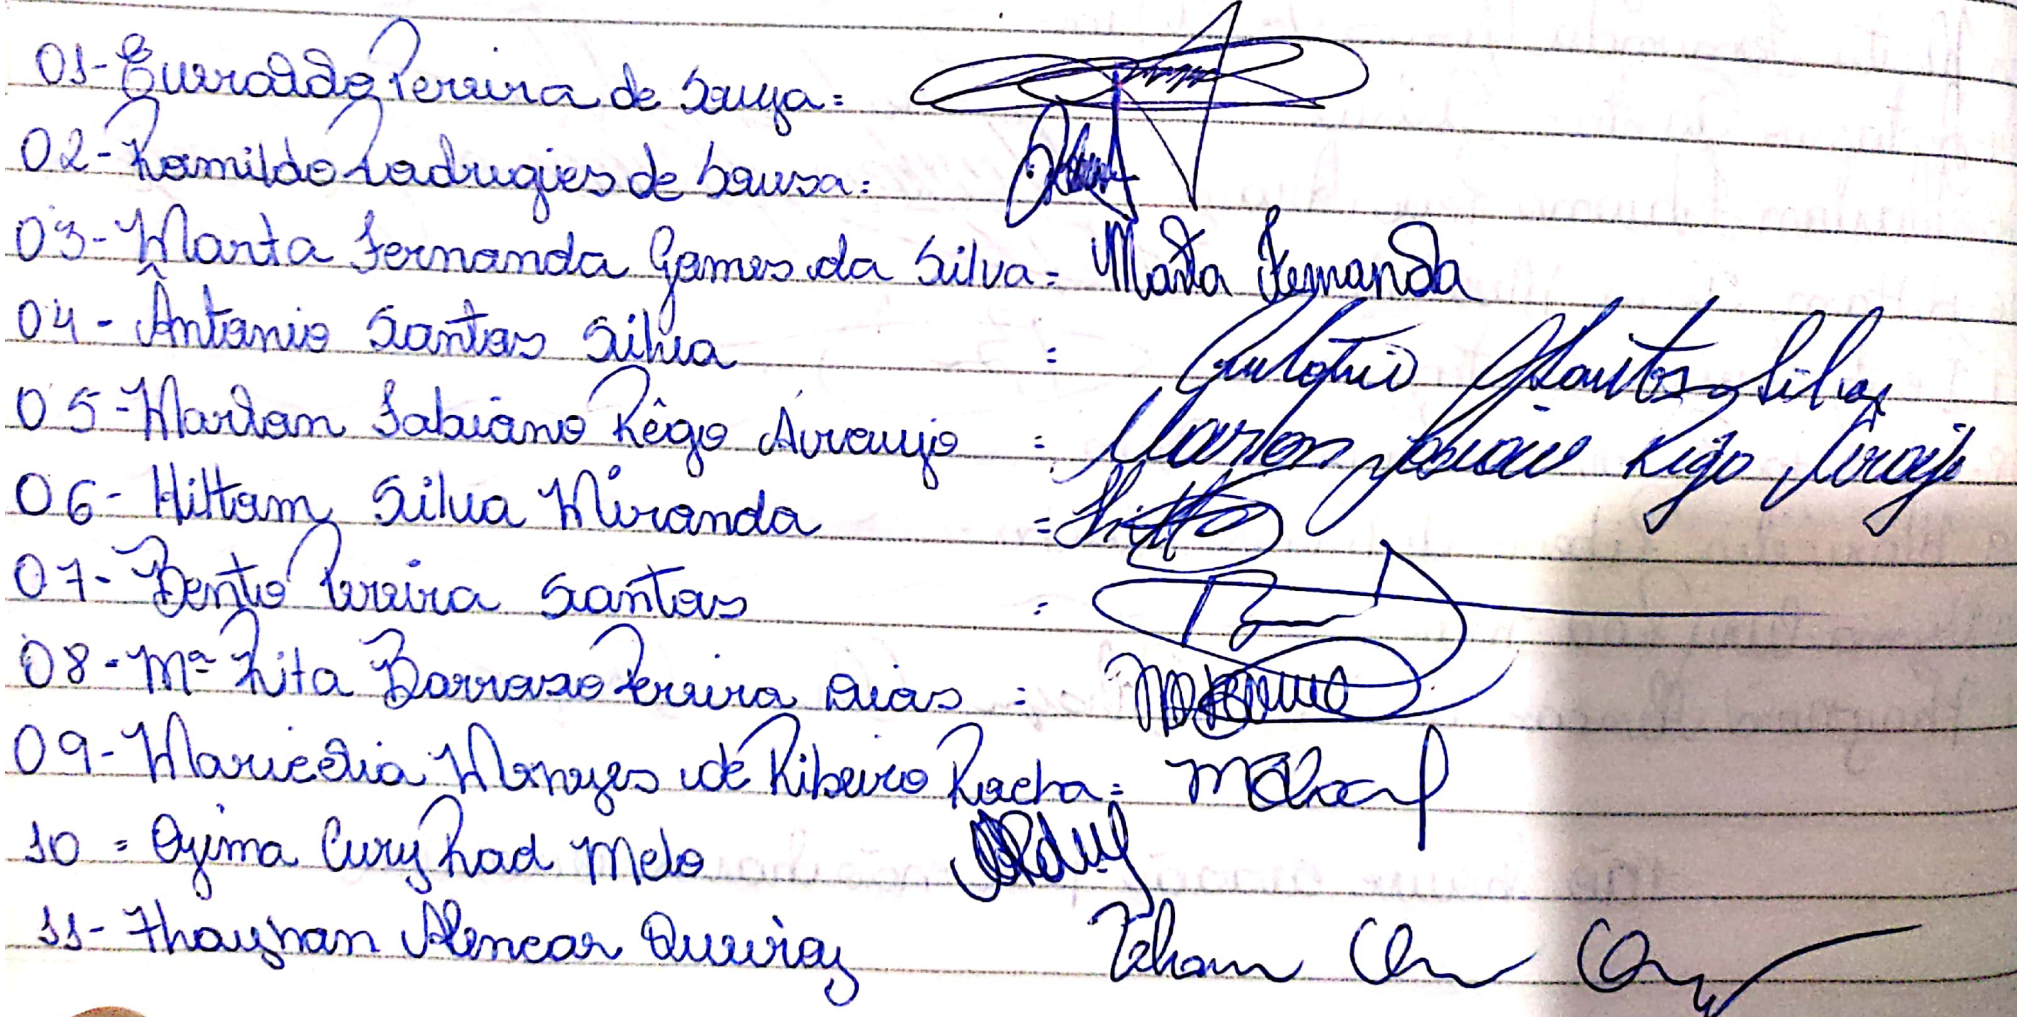 01- Eurraldo Pereira de Souza =
02- Ramildo Rodrugies de Sousa =
03- Marta Fernanda Gomes da Silva = Marta Fernanda
04 - Antonio Santos Silva = Antonio Santos Silva
05 - Marlon Fabiano Rêgo Araujo = Marlon Fabiano Rêgo Araujo
06 - Hittam Silva Miranda =
07 - Bento Pereira Santos =
08 - Mª Rita Barroso Pereira Dias =
09 - Maricélia Menezes de Ribeiro Rocha =
10 = Ozima Cury Rad Melo
11 - Thaynan Alencar Queiroz